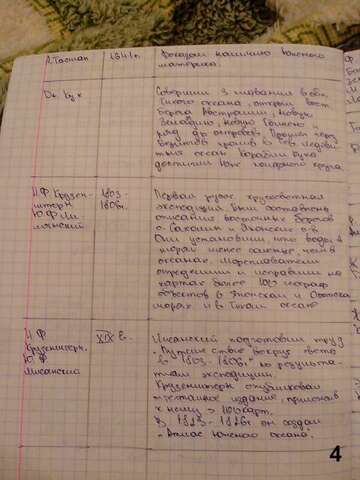 А. Тасман 1641г. Доказал наличие Южного
материка.
Дж. Кук Совершил 3 плавания в обл.
Тихого океана, открыл вост.
берега Австралии, Новую
Зеландию, Новую
ряд др. островов. Прошел через
Берингов пролив в Сев. Ледови-
тый океан.
достигли Южн. полярного круга.
И.Ф Крузен-
штерн
Ю.Ф Ли-
сянский
1803-
1806г.
Первая русс. кругосветная
экспедиция. Были составлены
описания восточных берегов
о. Сахалин и Японских о-в.
Они установили, что воды в
морях менее соленые, чем в
океанах. Мореплаватели
определили и исправили на
картах более 100 географ.
объектов в Японском и Охотском
морях и в Тихом океане
И.Ф
Крузенштерн.
Ю.Ф
Лисянский
XIX в.
Лисянский подготовил труд
«Путешествие вокруг света
в 1803-1806г.» по результа-
там экспедиции.
Крузенштерн опубликовал
издание, приложив
к нему > 100 карт.
В 1823-1826г он создал
«Атлас Южного океана».
4